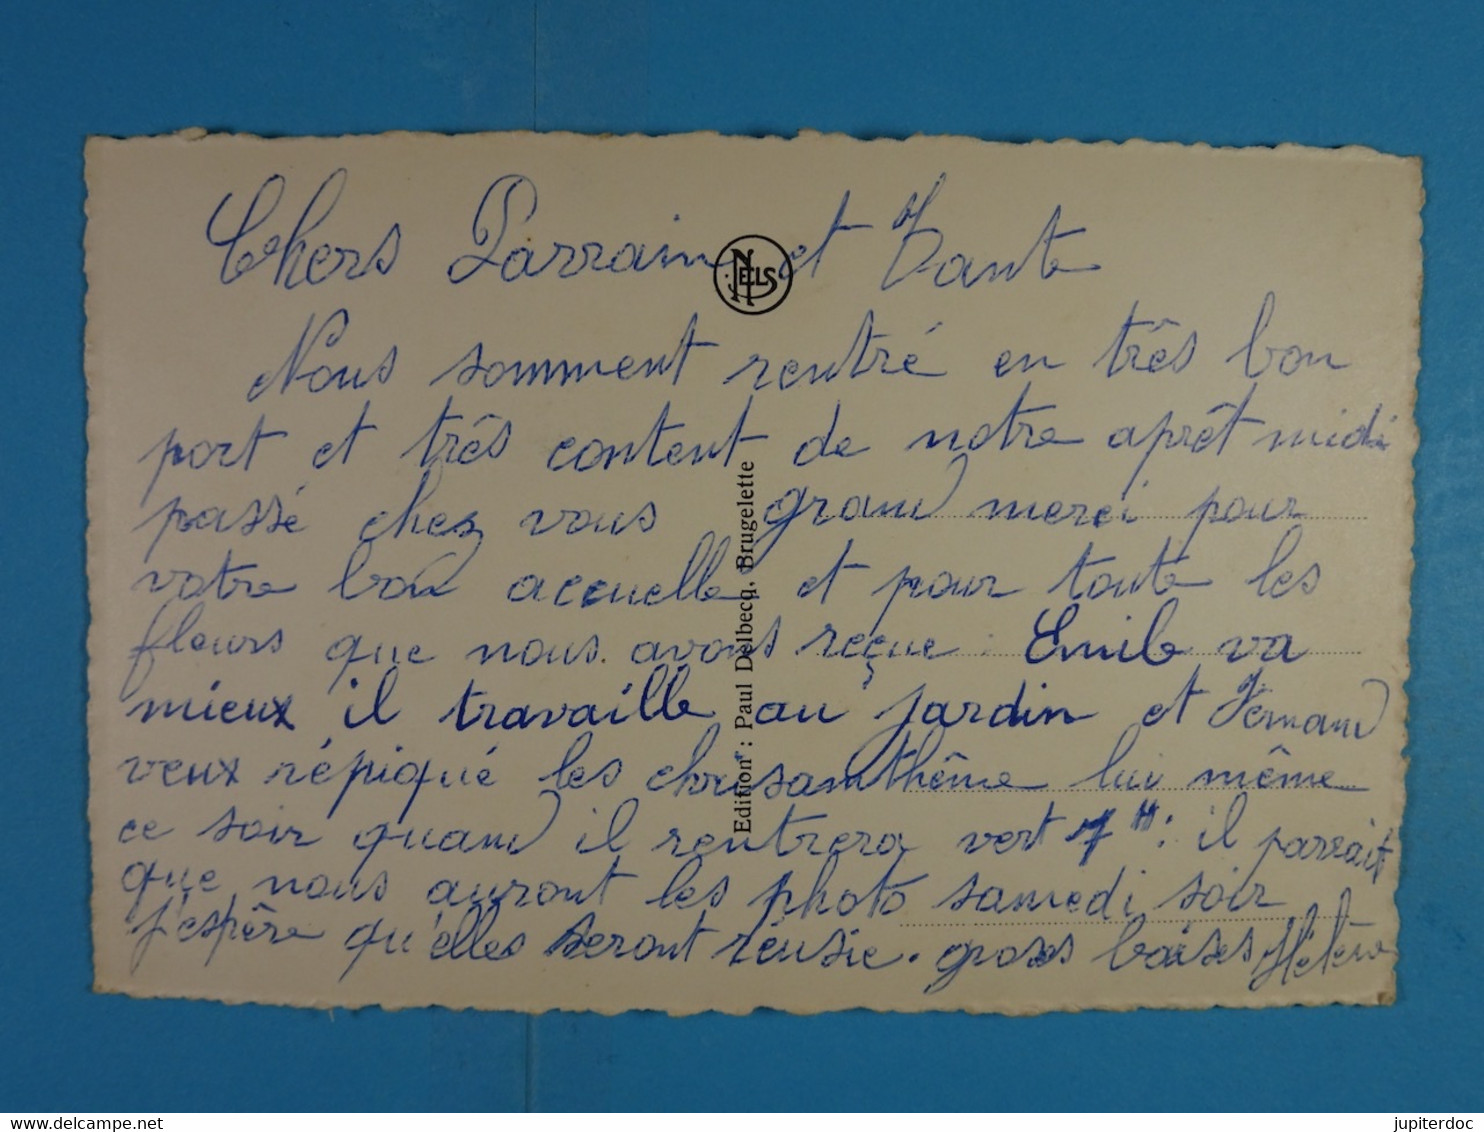 Chers Parrain et Tante
NELS
Nous somment rentré en três bon
port et três content de notre aprêt midi
passé chez vous grand merci pour
votre bon accuelle et pour toute les
fleurs que nous avons reçue. Emile va
mieux il travaille au jardin et Fernand
veux répiqué les chrisanthême lui même
ce soir quand il rentrera vert 7 H: il parrait
que nous auront les photo samedi soir
j'espêre qu'elles seront réusie. groses baises Hélène
Edition : Paul Delbecq, Brugelette
www.delcampe.net
jupiterdoc